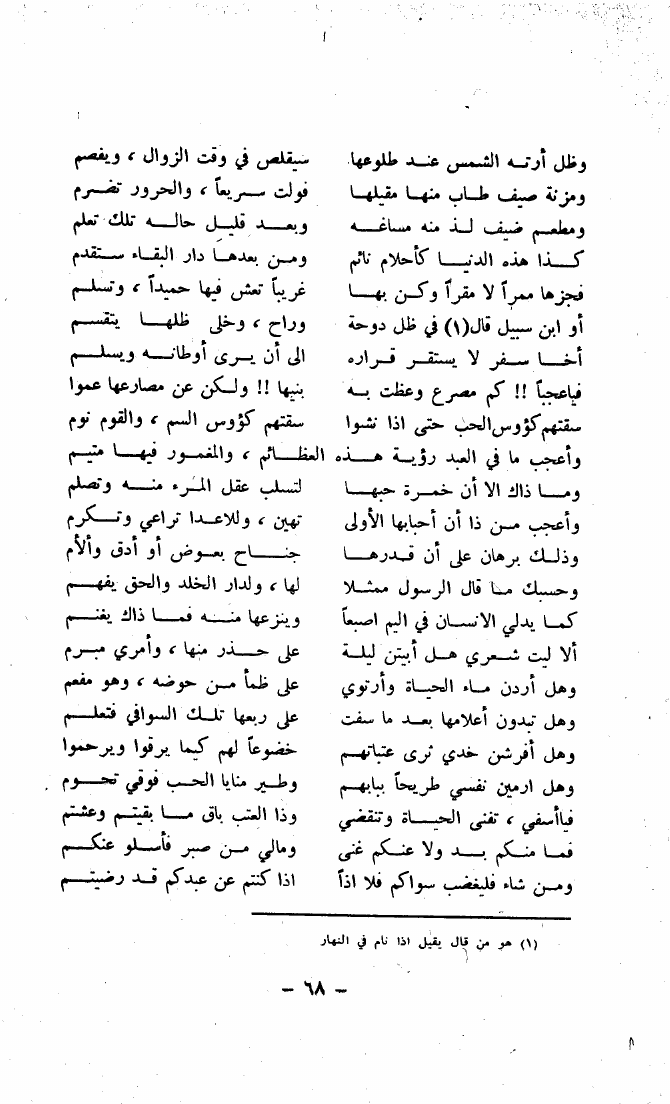 وظل أرته الشمس عند طلوعها سيقلص في وقت الزوال ، ويفصم
ومزنة صيف طاب منها مقيلها فولت سريعاً ، والحرور تضرم
ومطعم ضيف لذ منه مساغه وبعد قليل حاله تلك تعلم
كذا هذه الدنيا كأحلام نائم ومن بعدها دار البقاء ستقدم
فجزها ممراً لا مقراً وكن بها غريباً تعش فيها حميداً ، وتسلم
أو ابن سبيل قال(١) في ظل دوحة وراح ، وخلى ظلها يتقسم
أخا سفر لا يستقر قراره الى أن يرى أوطانه ويسلم
فياعجباً !! كم مصرع وعظت به بنيها !! ولكن عن مصارعها عموا
سقتهم كؤوس الحب حتى اذا نشوا سقتهم كؤوس السم ، والقوم نوم
وأعجب ما في العبد رؤية هذه العظائم ، والمغمور فيها متيم
وما ذاك الا أن خمرة حبها لتسلب عقل المرء منه وتصلم
وأعجب من ذا أن أحبابها الأولى تهين ، وللاعدا تراعي وتكرم
وذلك برهان على أن قدرها جناح بعوض أو أدق وألأم
وحسبك ما قال الرسول ممثلا لها ، ولدار الخلد والحق يفهم
كما يدلي الانسان في اليم اصبعاً وينزعها منه فما ذاك يغنم
ألا ليت شعري هل أبيتن ليلة على حذر منها ، وأمري مبرم
وهل أردن ماء الحياة وأرتوي على ظمأ من حوضه ، وهو مفعم
وهل تبدون أعلامها بعد ما سفت على ربعها تلك السوافي فتعلم
وهل أفرشن خدي ثرى عتباتهم خضوعاً لهم كيما يرقوا ويرحموا
وهل ارمين نفسي طريحاً ببابهم وطير منايا الحب فوقي تحوم
فياأسفي ، تفنى الحياة وتنقضي وذا العتب باق ما بقيتم وعشتم
فما منكم بد ولا عنكم غنى ومالي من صبر فأسلو عنكم
ومن شاء فليغضب سواكم فلا اذاً اذا كنتم عن عبدكم قد رضيتم
(١) هو من قال يقيل اذا نام في النهار
– ٦٨ –